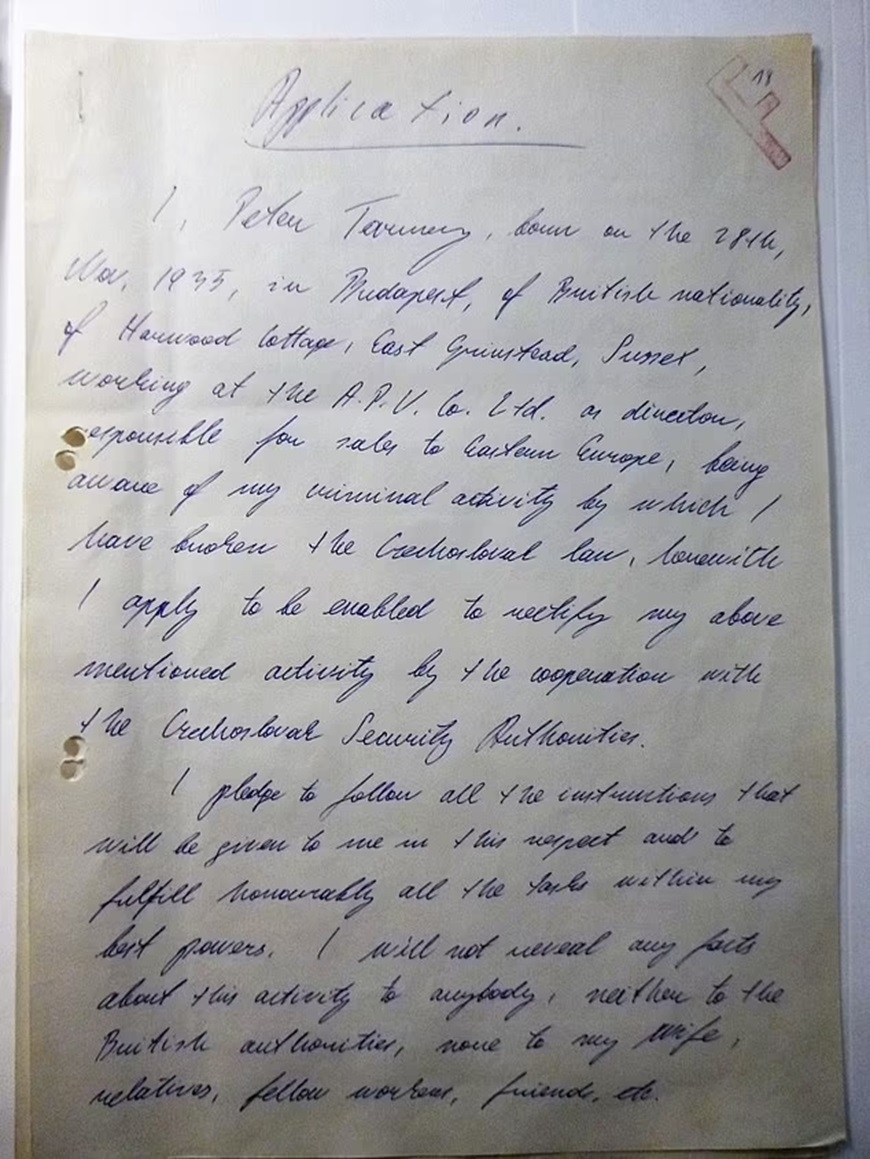 18
Application.
I, Peter Tarmey, born on the 28th,
Nov. 1935, in Budapest, of British nationality,
of Harwood Cottage, East Grinstead, Sussex,
working at the A.P.V. Co. Ltd. as director,
responsible for sales to Eastern Europe, being
aware of my criminal activity by which I
have broken the Czechoslovak law, herewith
I apply to be enabled to rectify my above
mentioned activity by the cooperation with
the Czechoslovak Security Authorities.
I pledge to follow all the instructions that
will be given to me in this respect and to
fulfill honourably all the tasks within my
best powers. I will not reveal any facts
about this activity to anybody, neither to the
British authorities, none to my wife,
relatives, fellow workers, friends, etc.